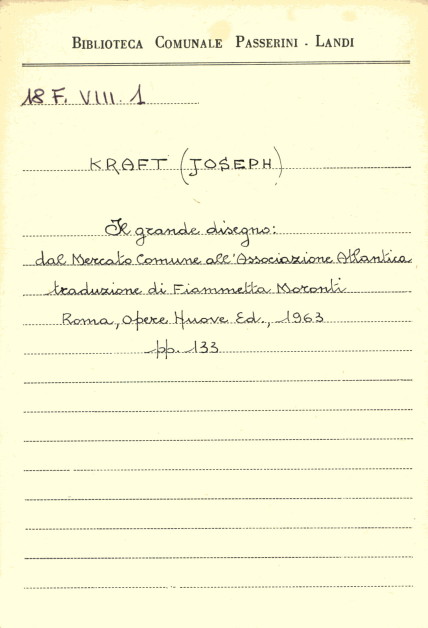 BIBLIOTECA COMUNALE PASSERINI - LANDI
18 F. VIII. 1
KRAFT (JOSEPH)
Il grande disegno:
dal Mercato Comune all'Associazione Atlantica
traduzione di Fiammetta Moronti
Roma, Opere Nuove Ed., 1963
pp. 133